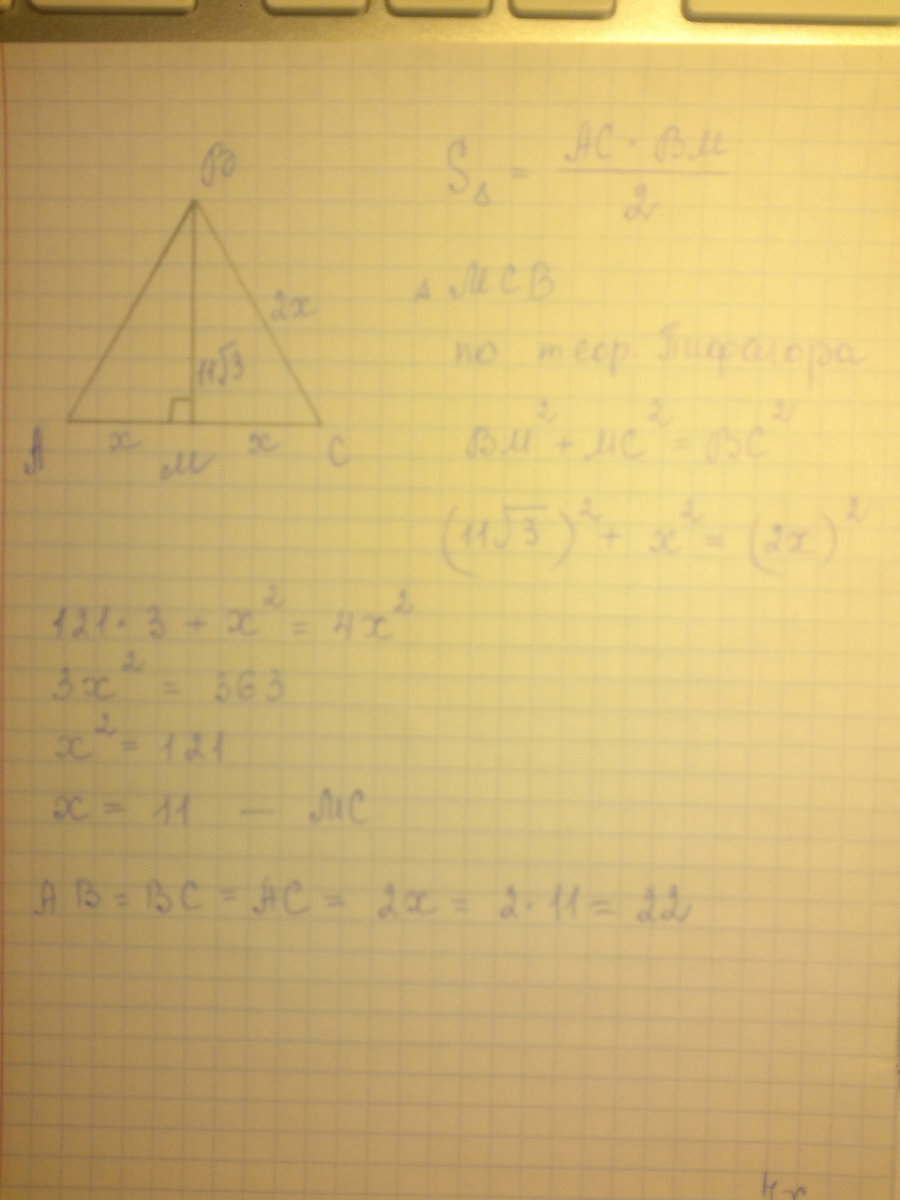 B
2x
11√3
A x M x C
S△ = AC · BM / 2
△ MCB
по теор. Пифагора
BM² + MC² = BC²
(11√3)² + x² = (2x)²
121 · 3 + x² = 4x²
3x² = 363
x² = 121
x = 11 — MC
AB = BC = AC = 2x = 2 · 11 = 22